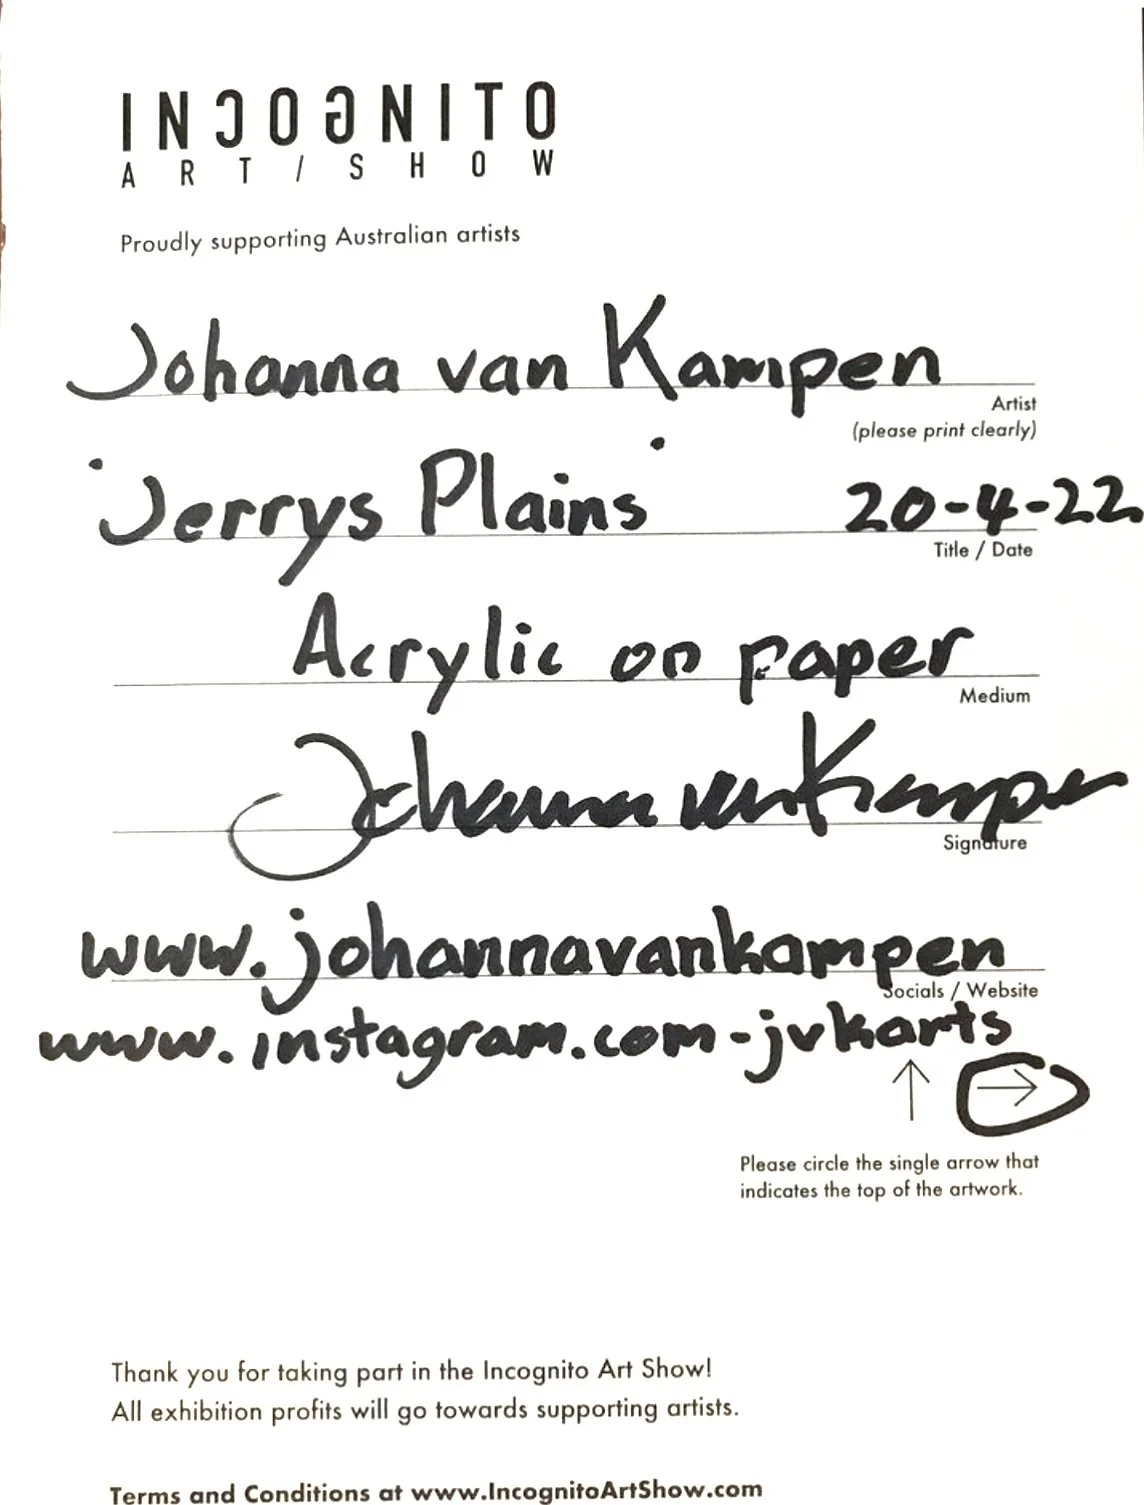 INCOGNITO
ART/SHOW
Proudly supporting Australian artists
Johanna van Kampen
Artist
(please print clearly)
'Jerrys Plains' 20-4-22
Title / Date
Acrylic on paper
Medium
Johanna van Kampen
Signature
www.johannavankampen
Socials / Website
www.instagram.com-jvkarts
↑ →
Please circle the single arrow that
indicates the top of the artwork.
Thank you for taking part in the Incognito Art Show!
All exhibition profits will go towards supporting artists.
Terms and Conditions at www.IncognitoArtShow.com